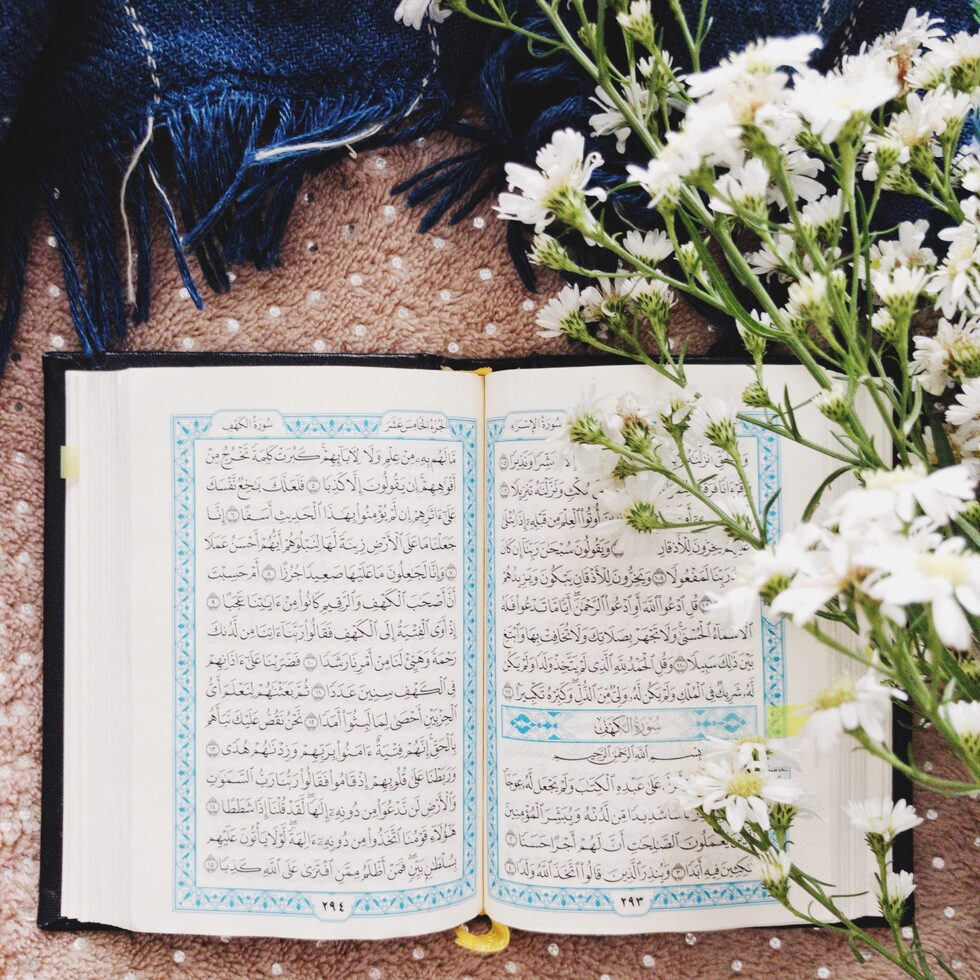 سُورَةُ الإِسْرَاء
أَنزَلْنَٰهُ مُبَشِّرًا وَنَذِيرًا ١٠٥
مُكْثٍ وَنَزَّلْنَٰهُ تَنزِيلًا ١٠٦
أُوتُوا۟ ٱلْعِلْمَ مِن قَبْلِهِۦٓ إِذَا يُتْلَىٰ
يَخِرُّونَ لِلْأَذْقَانِ وَيَقُولُونَ سُبْحَٰنَ رَبِّنَآ إِن كَانَ
رَبِّنَا لَمَفْعُولًا ١٠٨ وَيَخِرُّونَ لِلْأَذْقَانِ يَبْكُونَ وَيَزِيدُهُمْ
قُلِ ٱدْعُوا۟ ٱللَّهَ أَوِ ٱدْعُوا۟ ٱلرَّحْمَٰنَ ۖ أَيًّا مَّا تَدْعُوا۟ فَلَهُ
ٱلْأَسْمَآءُ ٱلْحُسْنَىٰ ۚ وَلَا تَجْهَرْ بِصَلَاتِكَ وَلَا تُخَافِتْ بِهَا وَٱبْتَغِ
بَيْنَ ذَٰلِكَ سَبِيلًا ١١٠ وَقُلِ ٱلْحَمْدُ لِلَّهِ ٱلَّذِى لَمْ يَتَّخِذْ وَلَدًا وَلَمْ يَكُن
لَّهُۥ شَرِيكٌ فِى ٱلْمُلْكِ وَلَمْ يَكُن لَّهُۥ وَلِىٌّ مِّنَ ٱلذُّلِّ ۖ وَكَبِّرْهُ تَكْبِيرًۢا ١١١
سُورَةُ الكَهْفِ
بِسْمِ ٱللَّهِ ٱلرَّحْمَٰنِ ٱلرَّحِيمِ
عَلَىٰ عَبْدِهِ ٱلْكِتَٰبَ وَلَمْ يَجْعَل لَّهُۥ عِوَجَا ١
بَأْسًا شَدِيدًا مِّن لَّدُنْهُ وَيُبَشِّرَ ٱلْمُؤْمِنِينَ
يَعْمَلُونَ ٱلصَّٰلِحَٰتِ أَنَّ لَهُمْ أَجْرًا حَسَنًا ٢
مَّٰكِثِينَ فِيهِ أَبَدًا ٣ وَيُنذِرَ ٱلَّذِينَ قَالُوا۟ ٱتَّخَذَ ٱللَّهُ وَلَدًا ٤
٢٩٣
الجُزْءُ الخَامِسَ عَشَرَ
سُورَةُ الكَهْفِ
مَّا لَهُم بِهِۦ مِنْ عِلْمٍ وَلَا لِءَابَآئِهِمْ ۚ كَبُرَتْ كَلِمَةً تَخْرُجُ مِنْ
أَفْوَٰهِهِمْ ۚ إِن يَقُولُونَ إِلَّا كَذِبًا ٥ فَلَعَلَّكَ بَٰخِعٌ نَّفْسَكَ
عَلَىٰٓ ءَاثَٰرِهِمْ إِن لَّمْ يُؤْمِنُوا۟ بِهَٰذَا ٱلْحَدِيثِ أَسَفًا ٦ إِنَّا
جَعَلْنَا مَا عَلَى ٱلْأَرْضِ زِينَةً لَّهَا لِنَبْلُوَهُمْ أَيُّهُمْ أَحْسَنُ عَمَلًا
٧ وَإِنَّا لَجَٰعِلُونَ مَا عَلَيْهَا صَعِيدًا جُرُزًا ٨ أَمْ حَسِبْتَ
أَنَّ أَصْحَٰبَ ٱلْكَهْفِ وَٱلرَّقِيمِ كَانُوا۟ مِنْ ءَايَٰتِنَا عَجَبًا ٩
إِذْ أَوَى ٱلْفِتْيَةُ إِلَى ٱلْكَهْفِ فَقَالُوا۟ رَبَّنَآ ءَاتِنَا مِن لَّدُنكَ
رَحْمَةً وَهَيِّئْ لَنَا مِنْ أَمْرِنَا رَشَدًا ١٠ فَضَرَبْنَا عَلَىٰٓ ءَاذَانِهِمْ
فِى ٱلْكَهْفِ سِنِينَ عَدَدًا ١١ ثُمَّ بَعَثْنَٰهُمْ لِنَعْلَمَ أَىُّ
ٱلْحِزْبَيْنِ أَحْصَىٰ لِمَا لَبِثُوٓا۟ أَمَدًا ١٢ نَّحْنُ نَقُصُّ عَلَيْكَ نَبَأَهُم
بِٱلْحَقِّ ۚ إِنَّهُمْ فِتْيَةٌ ءَامَنُوا۟ بِرَبِّهِمْ وَزِدْنَٰهُمْ هُدًى ١٣
وَرَبَطْنَا عَلَىٰ قُلُوبِهِمْ إِذْ قَامُوا۟ فَقَالُوا۟ رَبُّنَا رَبُّ ٱلسَّمَٰوَٰتِ
وَٱلْأَرْضِ لَن نَّدْعُوَا۟ مِن دُونِهِۦٓ إِلَٰهًا ۖ لَّقَدْ قُلْنَآ إِذًا شَطَطًا ١٤
هَٰٓؤُلَآءِ قَوْمُنَا ٱتَّخَذُوا۟ مِن دُونِهِۦٓ ءَالِهَةً ۖ لَّوْلَا يَأْتُونَ عَلَيْهِم
بِسُلْطَٰنٍۭ بَيِّنٍ ۖ فَمَنْ أَظْلَمُ مِمَّنِ ٱفْتَرَىٰ عَلَى ٱللَّهِ كَذِبًا ١٥
٢٩٤